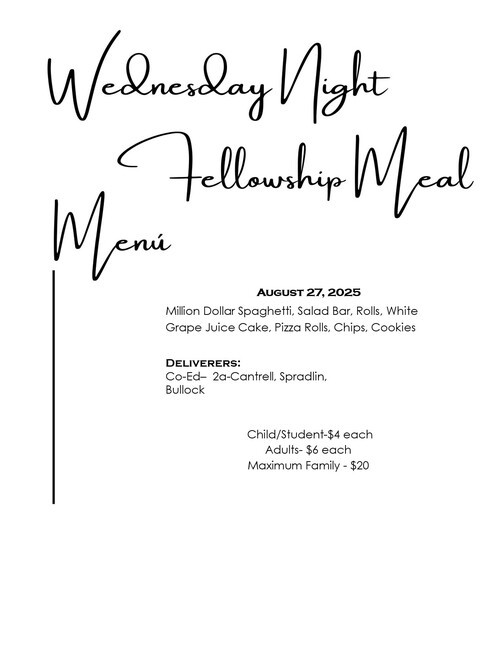 Wednesday Night
Fellowship Meal
Menú
August 27, 2025
Million Dollar Spaghetti, Salad Bar, Rolls, White
Grape Juice Cake, Pizza Rolls, Chips, Cookies
Deliverers:
Co-Ed– 2a-Cantrell, Spradlin,
Bullock
Child/Student-$4 each
Adults- $6 each
Maximum Family - $20